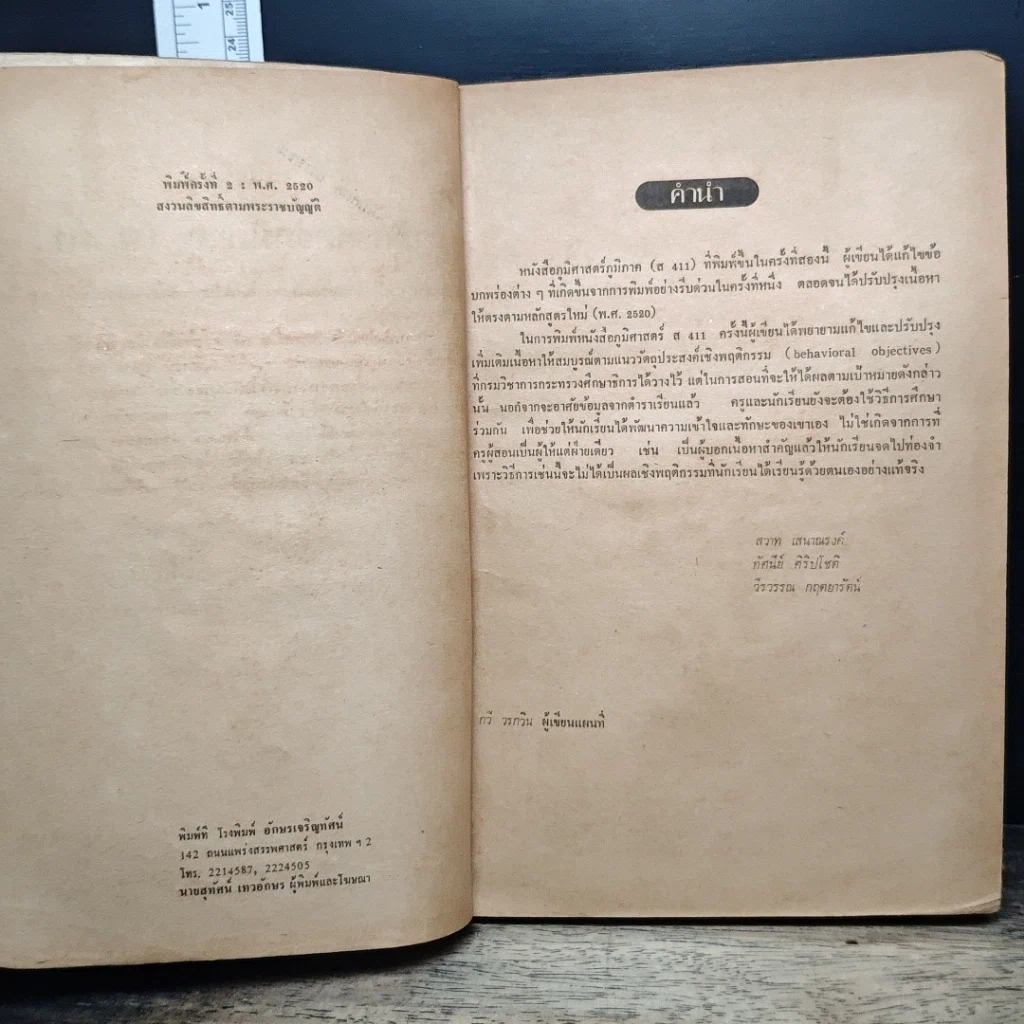 พิมพ์ครั้งที่ 2 : พ.ศ. 2520
สงวนลิขสิทธิ์ตามพระราชบัญญัติ
พิมพ์ที่ โรงพิมพ์ อักษรเจริญทัศน์
142 ถนนแพร่งสรรพศาสตร์ กรุงเทพ ฯ 2
โทร. 2214587, 2224505
นายสุทัศน์ เทวอักษร ผู้พิมพ์และโฆษณา
คำนำ
หนังสือภูมิศาสตร์ภูมิภาค (ส 411) ที่พิมพ์ขึ้นในครั้งที่สองนี้ ผู้เขียนได้แก้ไขข้อ
บกพร่องต่าง ๆ ที่เกิดขึ้นจากการพิมพ์อย่างรีบด่วนในครั้งที่หนึ่ง ตลอดจนได้ปรับปรุงเนื้อหา
ให้ตรงตามหลักสูตรใหม่ (พ.ศ. 2520)
ในการพิมพ์หนังสือภูมิศาสตร์ ส 411 ครั้งนี้ผู้เขียนได้พยายามแก้ไขและปรับปรุง
เพิ่มเติมเนื้อหาให้สมบูรณ์ตามแนววัตถุประสงค์เชิงพฤติกรรม (behavioral objectives)
ที่กรมวิชาการกระทรวงศึกษาธิการได้วางไว้ แต่ในการสอนที่จะให้ได้ผลตามเป้าหมายดังกล่าว
นั้น นอกจากจะอาศัยข้อมูลจากตำราเรียนแล้ว ครูและนักเรียนยังจะต้องใช้วิธีการศึกษา
ร่วมกัน เพื่อช่วยให้นักเรียนได้พัฒนาความเข้าใจและทักษะของเขาเอง ไม่ใช่เกิดจากการที่
ครูผู้สอนเป็นผู้ให้แต่ฝ่ายเดียว เช่น เป็นผู้บอกเนื้อหาสำคัญแล้วให้นักเรียนจดไปท่องจำ
เพราะวิธีการเช่นนี้จะไม่ได้เป็นผลเชิงพฤติกรรมที่นักเรียนได้เรียนรู้ด้วยตนเองอย่างแท้จริง
สวาท เสนาณรงค์
ทัศนีย์ คิริปโชติ
วีรวรรณ กฤตยารัตน์
กวี วรกวิน ผู้เขียนแผนที่